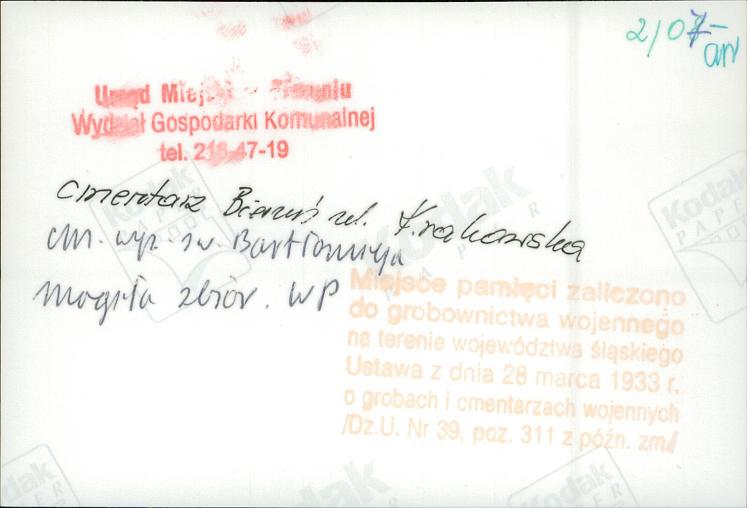 2/07-
an
Urząd Miejski w Bieruniu
Wydział Gospodarki Komunalnej
tel. 216-47-19
cmentarz Bieruń ul. Krakowska
cm. wyz. św. Bartłomieja
mogiła zbior. WP
Miejsce pamięci zaliczono
do grobownictwa wojennego
na terenie województwa śląskiego
Ustawa z dnia 28 marca 1933 r.
o grobach i cmentarzach wojennych
/Dz.U. Nr 39, poz. 311 z późn. zm./
Kodak
PAPER
Kodak
PAPER
Kodak
PAPER
Kodak
Kodak
PAPER